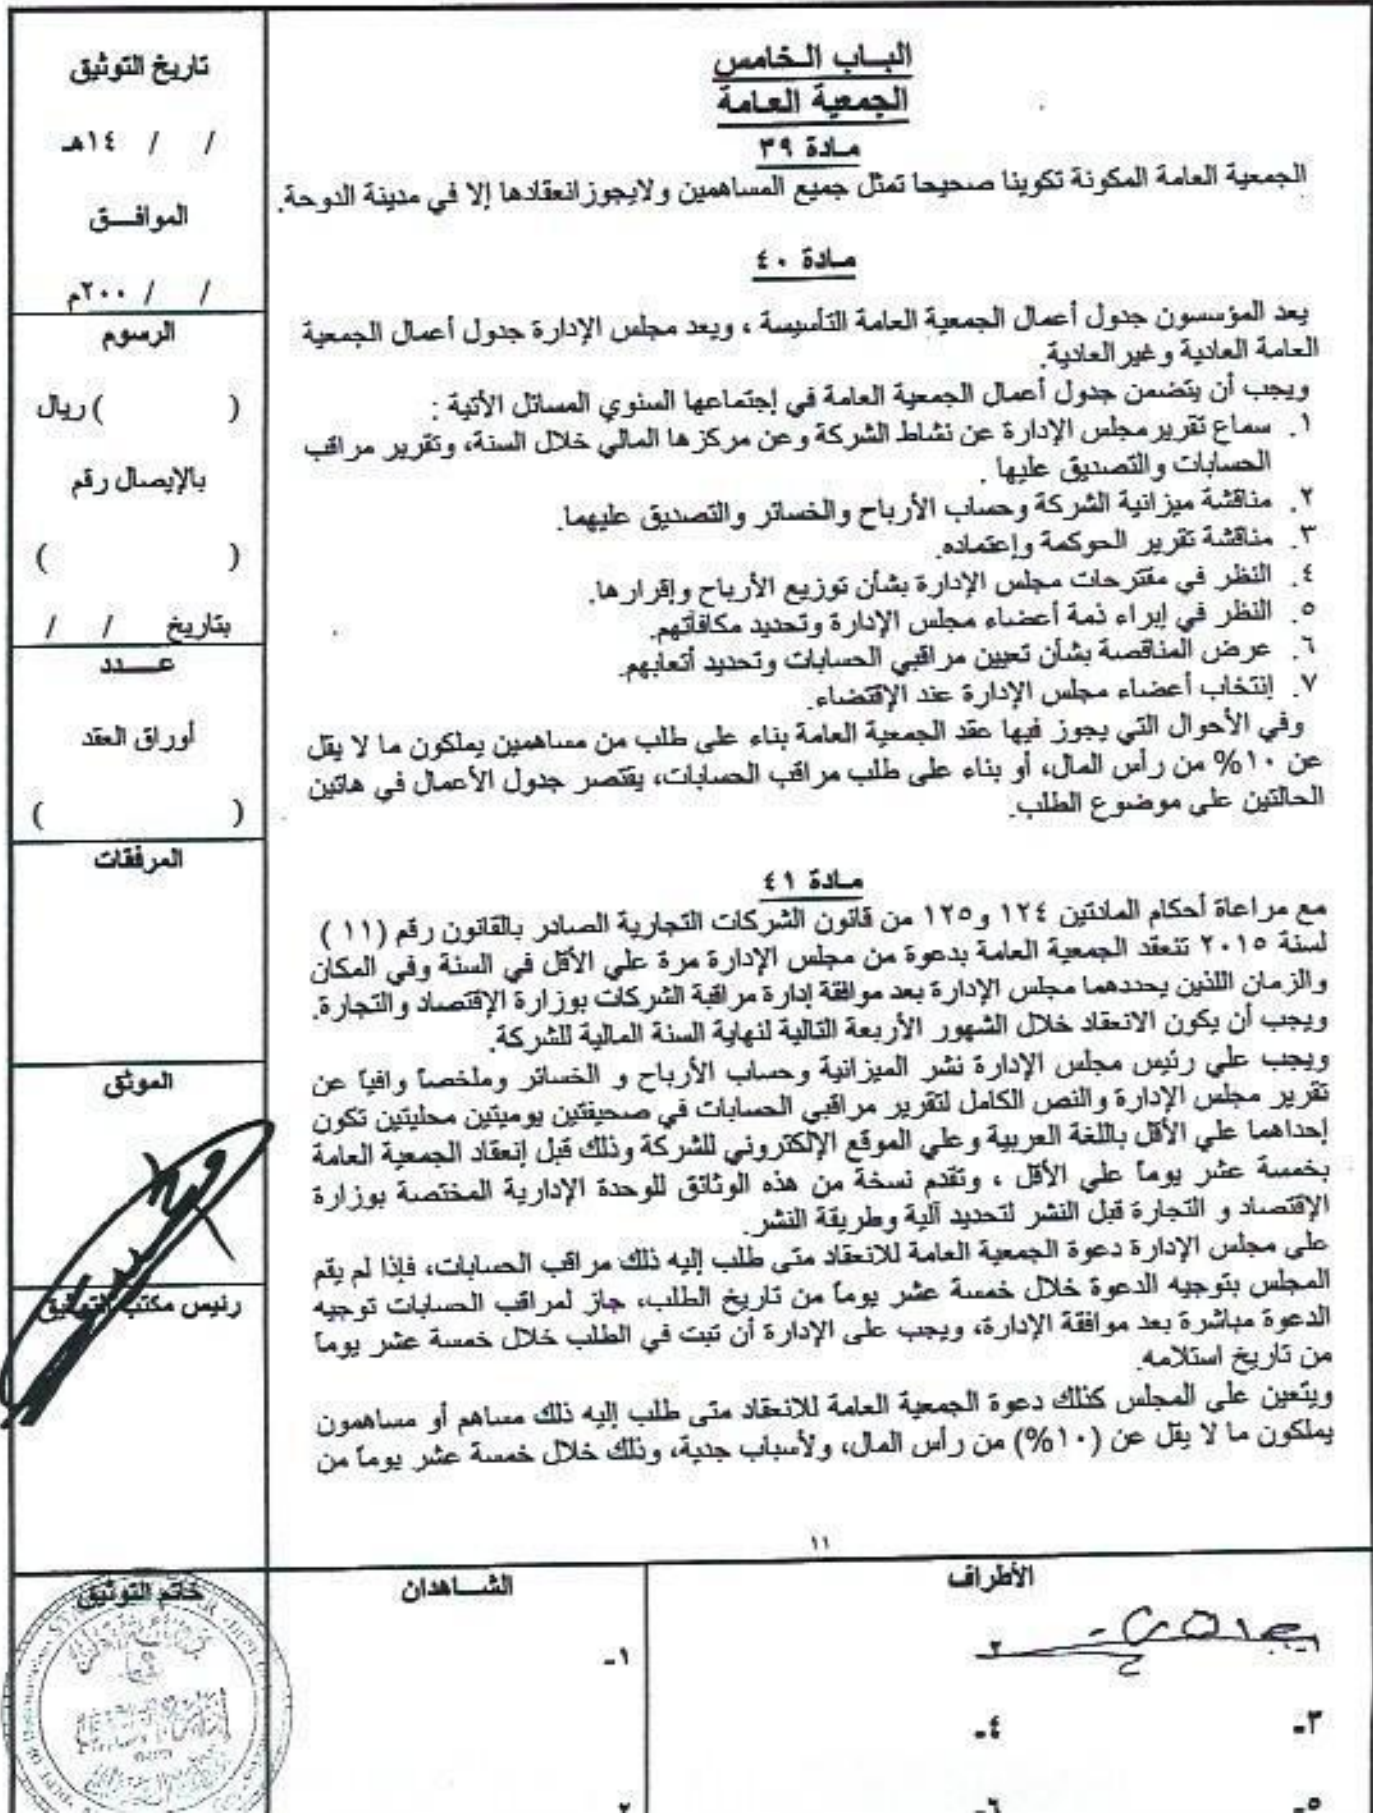 الباب الخامس
الجمعية العامة
مادة ٣٩
الجمعية العامة المكونة تكوينا صحيحا تمثل جميع المساهمين ولايجوز انعقادها إلا في مدينة الدوحة.
مادة ٤٠
يعد المؤسسون جدول أعمال الجمعية العامة التأسيسة ، ويعد مجلس الإدارة جدول أعمال الجمعية
العامة العادية وغير العادية.
ويجب أن يتضمن جدول أعمال الجمعية العامة في إجتماعها السنوي المسائل الأتية :
١. سماع تقرير مجلس الإدارة عن نشاط الشركة وعن مركزها المالي خلال السنة، وتقرير مراقب
الحسابات والتصديق عليها .
٢. مناقشة ميزانية الشركة وحساب الأرباح والخسائر والتصديق عليهما.
٣. مناقشة تقرير الحوكمة وإعتماده.
٤. النظر في مقترحات مجلس الإدارة بشأن توزيع الأرباح وإقرارها.
٥. النظر في إبراء ذمة أعضاء مجلس الإدارة وتحديد مكافأتهم.
٦. عرض المناقصة بشأن تعيين مراقبي الحسابات وتحديد أتعابهم.
٧. إنتخاب أعضاء مجلس الإدارة عند الإقتضاء.
وفي الأحوال التي يجوز فيها عقد الجمعية العامة بناء على طلب من مساهمين يملكون ما لا يقل
عن ١٠% من رأس المال، أو بناء على طلب مراقب الحسابات، يقتصر جدول الأعمال في هاتين
الحالتين على موضوع الطلب.
مادة ٤١
مع مراعاة أحكام المادتين ١٢٤ و١٢٥ من قانون الشركات التجارية الصادر بالقانون رقم (١١ )
لسنة ٢٠١٥ تنعقد الجمعية العامة بدعوة من مجلس الإدارة مرة علي الأقل في السنة وفي المكان
والزمان اللذين يحددهما مجلس الإدارة بعد موافقة إدارة مراقبة الشركات بوزارة الإقتصاد والتجارة.
ويجب أن يكون الانعقاد خلال الشهور الأربعة التالية لنهاية السنة المالية للشركة.
ويجب علي رئيس مجلس الإدارة نشر الميزانية وحساب الأرباح و الخسائر وملخصاً وافياً عن
تقرير مجلس الإدارة والنص الكامل لتقرير مراقبي الحسابات في صحيفتين يوميتين محليتين تكون
إحداهما علي الأقل باللغة العربية وعلي الموقع الإلكتروني للشركة وذلك قبل إنعقاد الجمعية العامة
بخمسة عشر يوماً علي الأقل ، وتقدم نسخة من هذه الوثائق للوحدة الإدارية المختصة بوزارة
الإقتصاد و التجارة قبل النشر لتحديد آلية وطريقة النشر.
على مجلس الإدارة دعوة الجمعية العامة للانعقاد متى طلب إليه ذلك مراقب الحسابات، فإذا لم يقم
المجلس بتوجيه الدعوة خلال خمسة عشر يوماً من تاريخ الطلب، جاز لمراقب الحسابات توجيه
الدعوة مباشرة بعد موافقة الإدارة، ويجب على الإدارة أن تبت في الطلب خلال خمسة عشر يوماً
من تاريخ استلامه.
ويتعين على المجلس كذلك دعوة الجمعية العامة للانعقاد متى طلب إليه ذلك مساهم أو مساهمون
يملكون ما لا يقل عن (١٠%) من رأس المال، ولأسباب جدية، وذلك خلال خمسة عشر يوماً من
١١
تاريخ التوثيق
/ / ١٤هـ
الموافـــق
/ / ٢٠٠م
الرسوم
( ) ريال
بالإيصال رقم
( )
بتاريخ / /
عـــدد
أوراق العقد
( )
المرفقات
الموثق
رئيس مكتب التوثيق
الأطراف
٢
٣- ٤-
٥- ٦-
الشـــاهدان
١-
٢
خاتم التوثيق